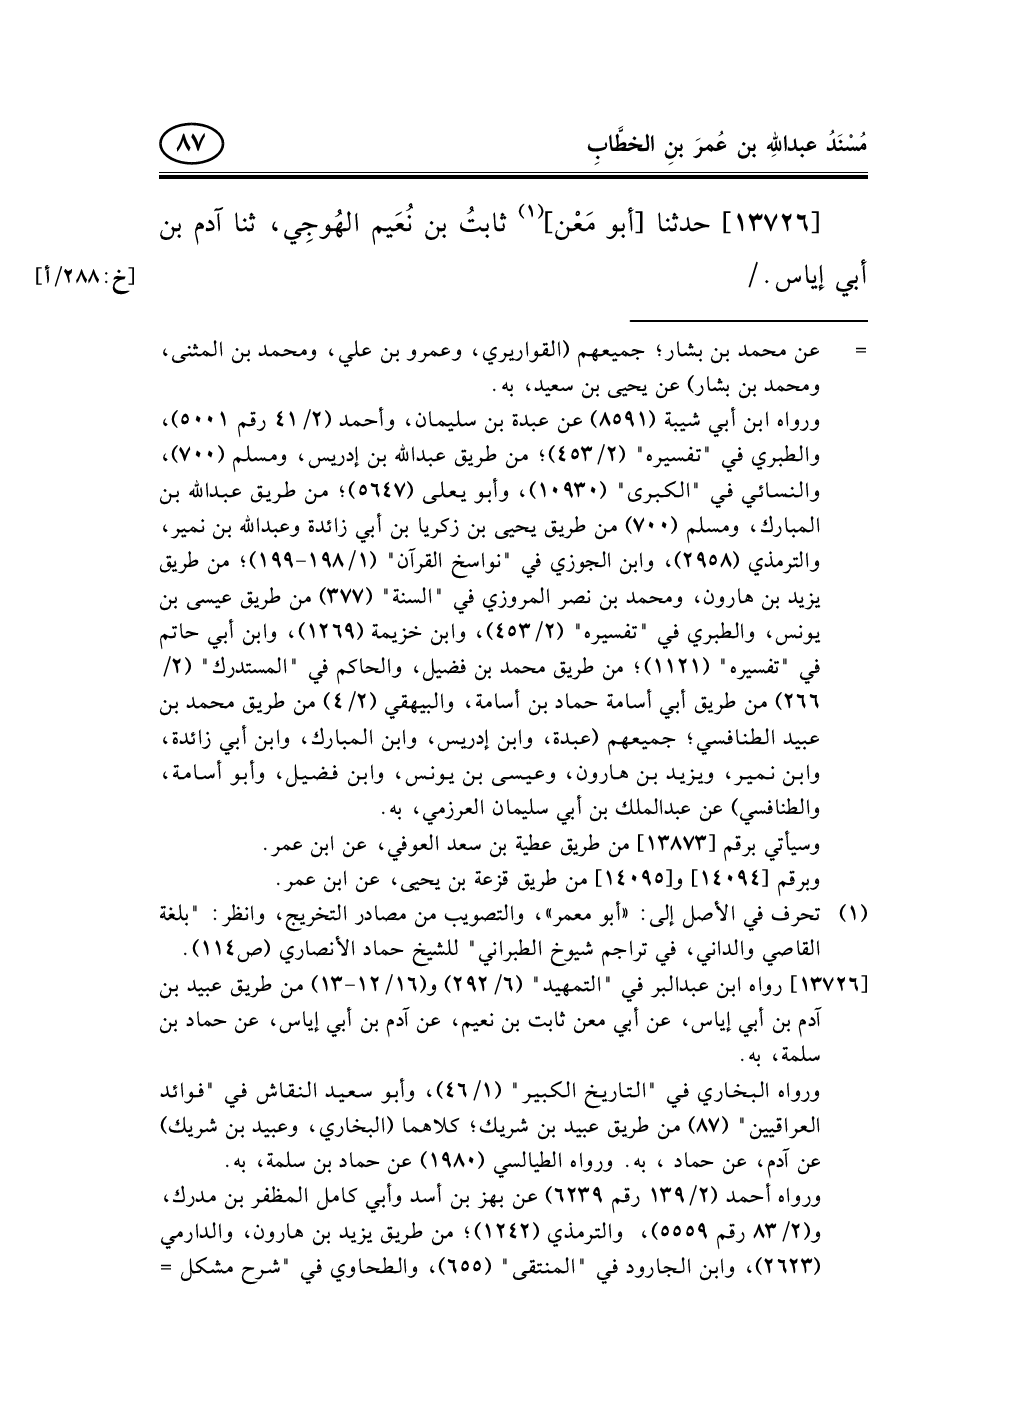 مُسْنَدُ عبداللهِ بن عُمرَ بنِ الخطَّابِ
٨٧
[١٣٧٢٦] حدثنا [أبو مَعْن](١) ثابتُ بن نُعَيم الهُوجِي، ثنا آدم بن
أبي إياس. /
[خ:٢٨٨/أ]
= عن محمد بن بشار؛ جميعهم (القواريري، وعمرو بن علي، ومحمد بن المثنى،
ومحمد بن بشار) عن يحيى بن سعيد، به.
ورواه ابن أبي شيبة (٨٥٩١) عن عبدة بن سليمان، وأحمد (٢/ ٤١ رقم ٥٠٠١)،
والطبري في "تفسيره" (٢/ ٤٥٣)؛ من طريق عبدالله بن إدريس، ومسلم (٧٠٠)،
والنسائي في "الكبرى" (١٠٩٣٠)، وأبو يعلى (٥٦٤٧)؛ من طريق عبدالله بن
المبارك، ومسلم (٧٠٠) من طريق يحيى بن زكريا بن أبي زائدة وعبدالله بن نمير،
والترمذي (٢٩٥٨)، وابن الجوزي في "نواسخ القرآن" (١/ ١٩٨-١٩٩)؛ من طريق
يزيد بن هارون، ومحمد بن نصر المروزي في "السنة" (٣٧٧) من طريق عيسى بن
يونس، والطبري في "تفسيره" (٢/ ٤٥٣)، وابن خزيمة (١٢٦٩)، وابن أبي حاتم
في "تفسيره" (١١٢١)؛ من طريق محمد بن فضيل، والحاكم في "المستدرك" (٢/
٢٦٦) من طريق أبي أسامة حماد بن أسامة، والبيهقي (٢/ ٤) من طريق محمد بن
عبيد الطنافسي؛ جميعهم (عبدة، وابن إدريس، وابن المبارك، وابن أبي زائدة،
وابن نمير، ويزيد بن هارون، وعيسى بن يونس، وابن فضيل، وأبو أسامة،
والطنافسي) عن عبدالملك بن أبي سليمان العرزمي، به.
وسيأتي برقم [١٣٨٧٣] من طريق عطية بن سعد العوفي، عن ابن عمر.
وبرقم [١٤٠٩٤] و[١٤٠٩٥] من طريق قزعة بن يحيى، عن ابن عمر.
(١) تحرف في الأصل إلى: «أبو معمر»، والتصويب من مصادر التخريج، وانظر: "بلغة
القاصي والداني، في تراجم شيوخ الطبراني" للشيخ حماد الأنصاري (ص١١٤).
[١٣٧٢٦] رواه ابن عبدالبر في "التمهيد" (٦/ ٢٩٢) و(١٦/ ١٢-١٣) من طريق عبيد بن
آدم بن أبي إياس، عن أبي معن ثابت بن نعيم، عن آدم بن أبي إياس، عن حماد بن
سلمة، به.
ورواه البخاري في "التاريخ الكبير" (١/ ٤٦)، وأبو سعيد النقاش في "فوائد
العراقيين" (٨٧) من طريق عبيد بن شريك؛ كلاهما (البخاري، وعبيد بن شريك)
عن آدم، عن حماد ، به. ورواه الطيالسي (١٩٨٠) عن حماد بن سلمة، به.
ورواه أحمد (٢/ ١٣٩ رقم ٦٢٣٩) عن بهز بن أسد وأبي كامل المظفر بن مدرك،
و(٢/ ٨٣ رقم ٥٥٥٩)، والترمذي (١٢٤٢)؛ من طريق يزيد بن هارون، والدارمي
(٢٦٢٣)، وابن الجارود في "المنتقى" (٦٥٥)، والطحاوي في "شرح مشكل =